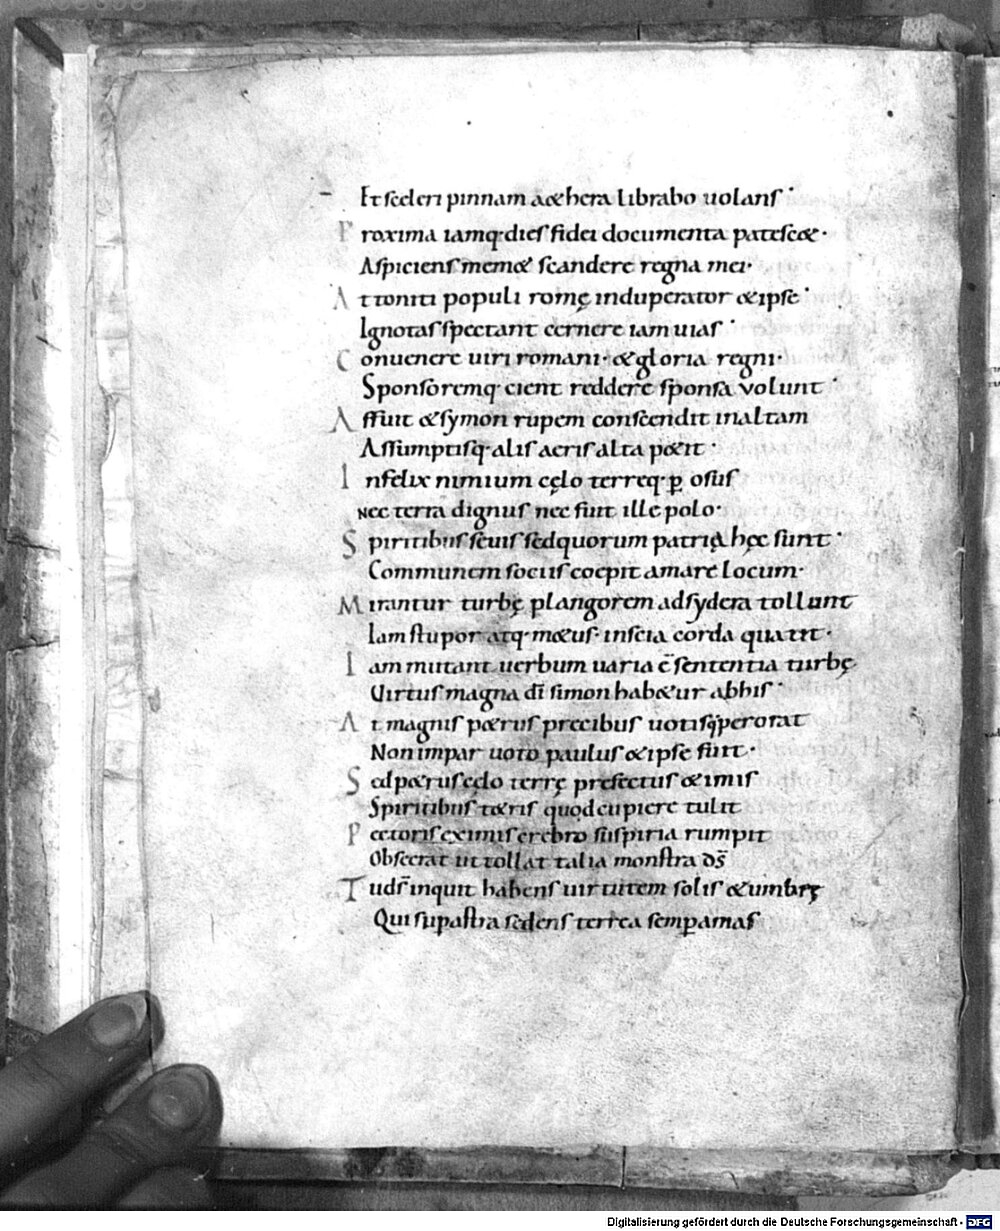 Et sceleri pinnam aethera librabo uolans·
Proxima iamq· dies fidei documenta patescet·
Aspiciens memet scandere regna mei·
Attoniti populi romę induperator & ipse·
Ignotas spectant cernere iam uias·
Conuenere uiri romani· & gloria regni·
Sponsoremq· cient reddere sponsa volunt·
Affuit & symon rupem conscendit in altam
Assumptisq· alis aeris alta petit·
Infelix nimium cęlo terreq· ꝑ osus
nec terra dignus nec fuit ille polo·
Spiritibus seuis sed quorum patrię hęc sunt·
Communem sociis coepit amare locum·
Mirantur turbę plangorem ad sydera tollunt
Iam stupor atq· metus· inscia corda quatit·
Iam mutant uerbum uaria ē sententia turbę
Uirtus magna dī simon habetur ab his·
At magnus petrus precibus uotisq; perorat
Non impar uoto paulus & ipse fuit·
Sed petrus cęlo terrę prefectus & imis
Spiritibus tetris quod cupiere tulit
Pectoris eximis crebro suspiria rumpit
Obsecrat ut tollat talia monstra ds̄
Tu ds̄ inquit habens uirtutem solis & umbrę
Qui suꝑ astra sedens terrea semꝑ amas
Digitalisierung gefördert durch die Deutsche Forschungsgemeinschaft - DFG